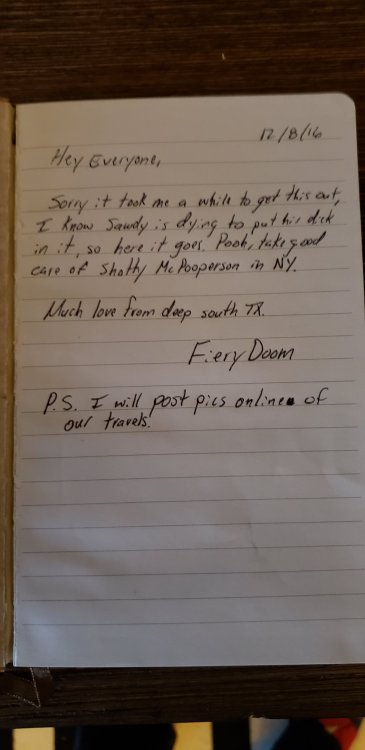 12/8/16
Hey Everyone,
Sorry it took me a while to get this out,
I know Sawdy is dying to put his dick
in it, so here it goes. Pooh, take good
care of Shatty McPooperson in NY.
Much love from deep south TX.
Fiery Doom
P.S. I will post pics online of
our travels.